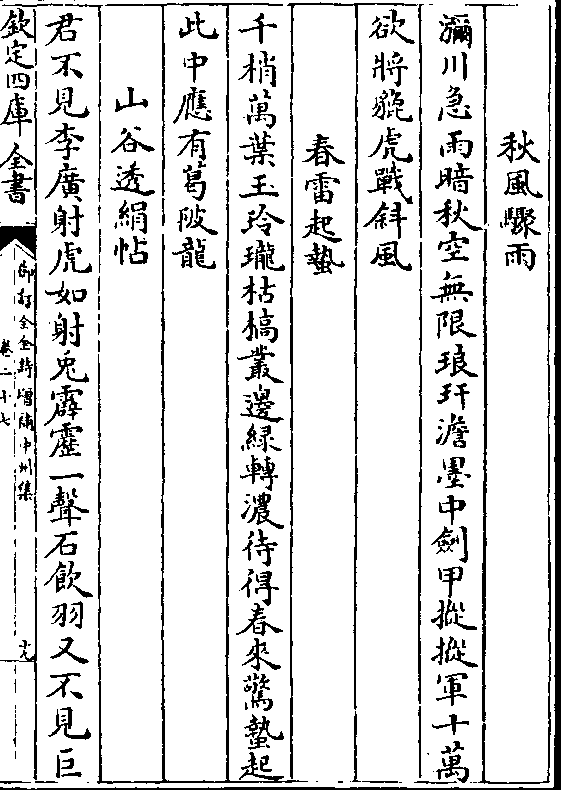 秋風驟雨
瀰川急雨暗秋空無限琅玕澹墨中劍甲摐摐軍十萬
欲將貔虎戰斜風
春雷起蟄
千梢萬葉玉玲瓏枯槁叢邊綠轉濃待得春來驚蟄起
此中應有葛陂龍
山谷透絹帖
君不見李廣射虎如射兎霹靂一聲石飲羽又不見巨
欽定四庫全書
御訂全金詩增補中州集
卷二十七
十九